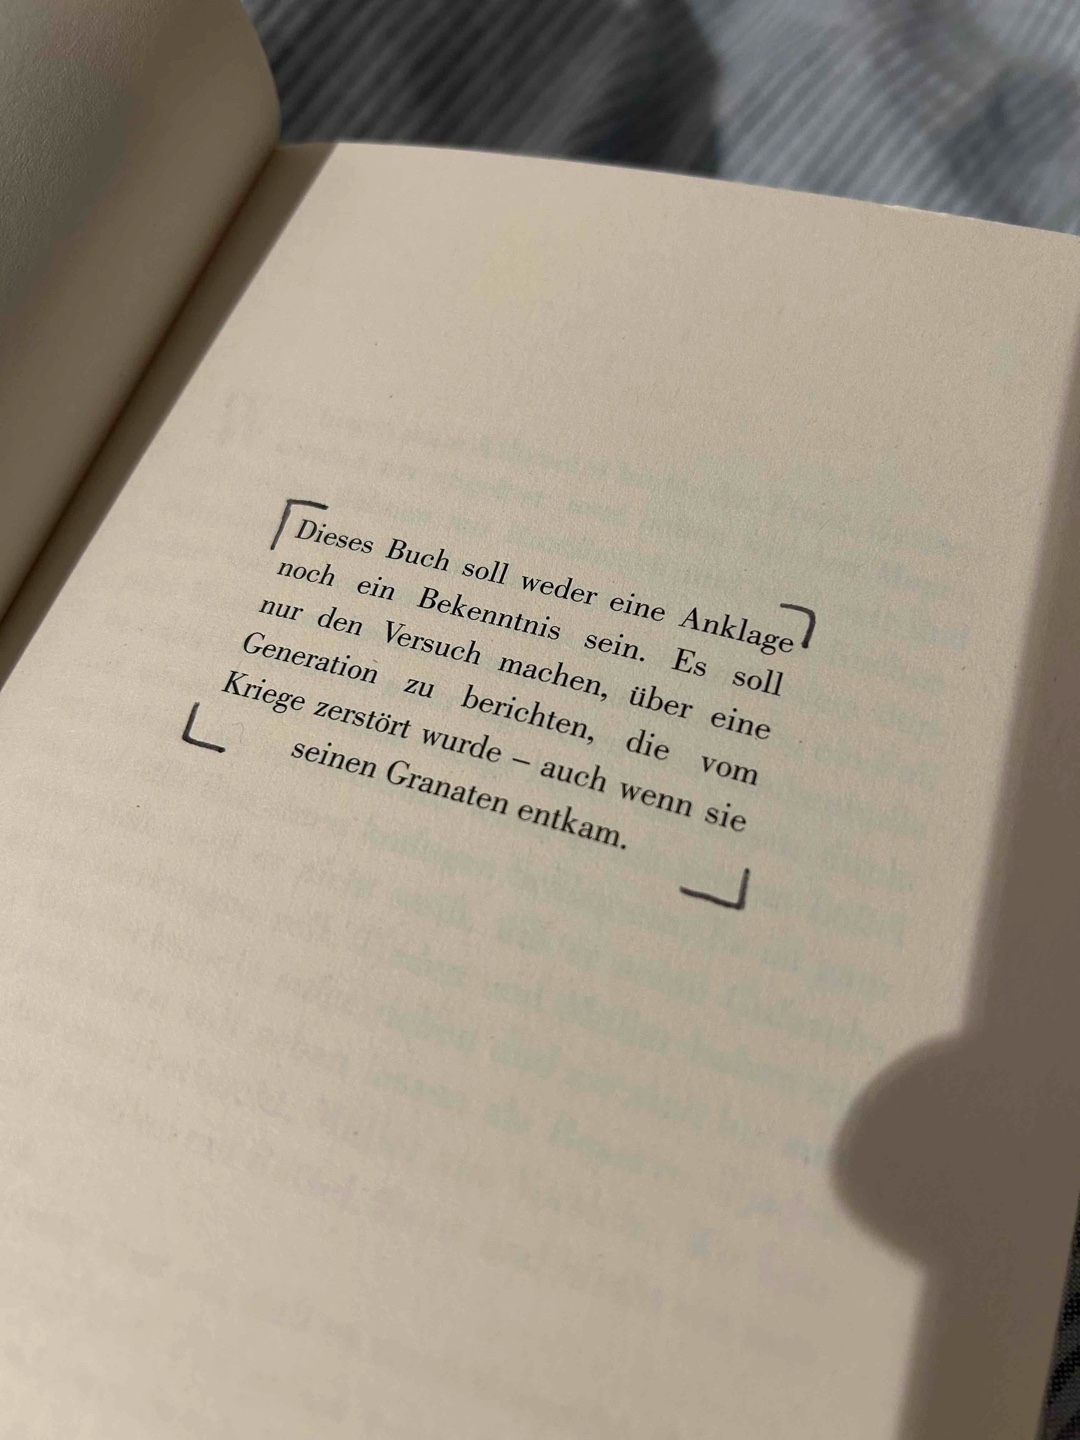 Dieses Buch soll weder eine Anklage
noch ein Bekenntnis sein. Es soll
nur den Versuch machen, über eine
Generation zu berichten, die vom
Kriege zerstört wurde – auch wenn sie
seinen Granaten entkam.